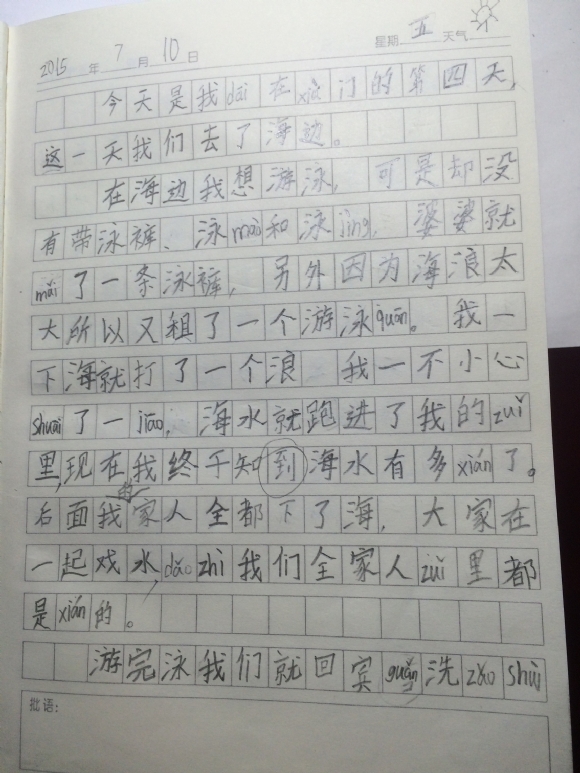 2015年7月10日 星期五 天气
今天是我dāi在xià门的第四天,
这一天我们去了海边。
在海边我想游泳, 可是却没
有带泳裤、泳mào和泳jìng, 婆婆就
mǎi了一条泳裤, 另外因为海浪太
大所以又租了一个游泳quān。我一
下海就打了一个浪 我一不小心
shuāi了一jiāo, 海水就跑进了我的zuǐ
里,现在我终于知到海水有多xián了。
后面我的家人全都下了海, 大家在
一起戏水dǎo zhì我们全家人zuǐ里都
是xián的。
游完泳我们就回宾guǎn洗zǎo shuì
批语: